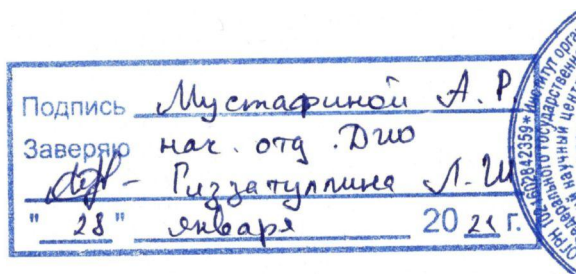 Подпись Мустафиной А.Р.
Заверяю нач. отд. ДИО
Гиззатуллина Л.Ш
"28" января 2021 г.
602842359 * Институт орга
государствен
научный цент